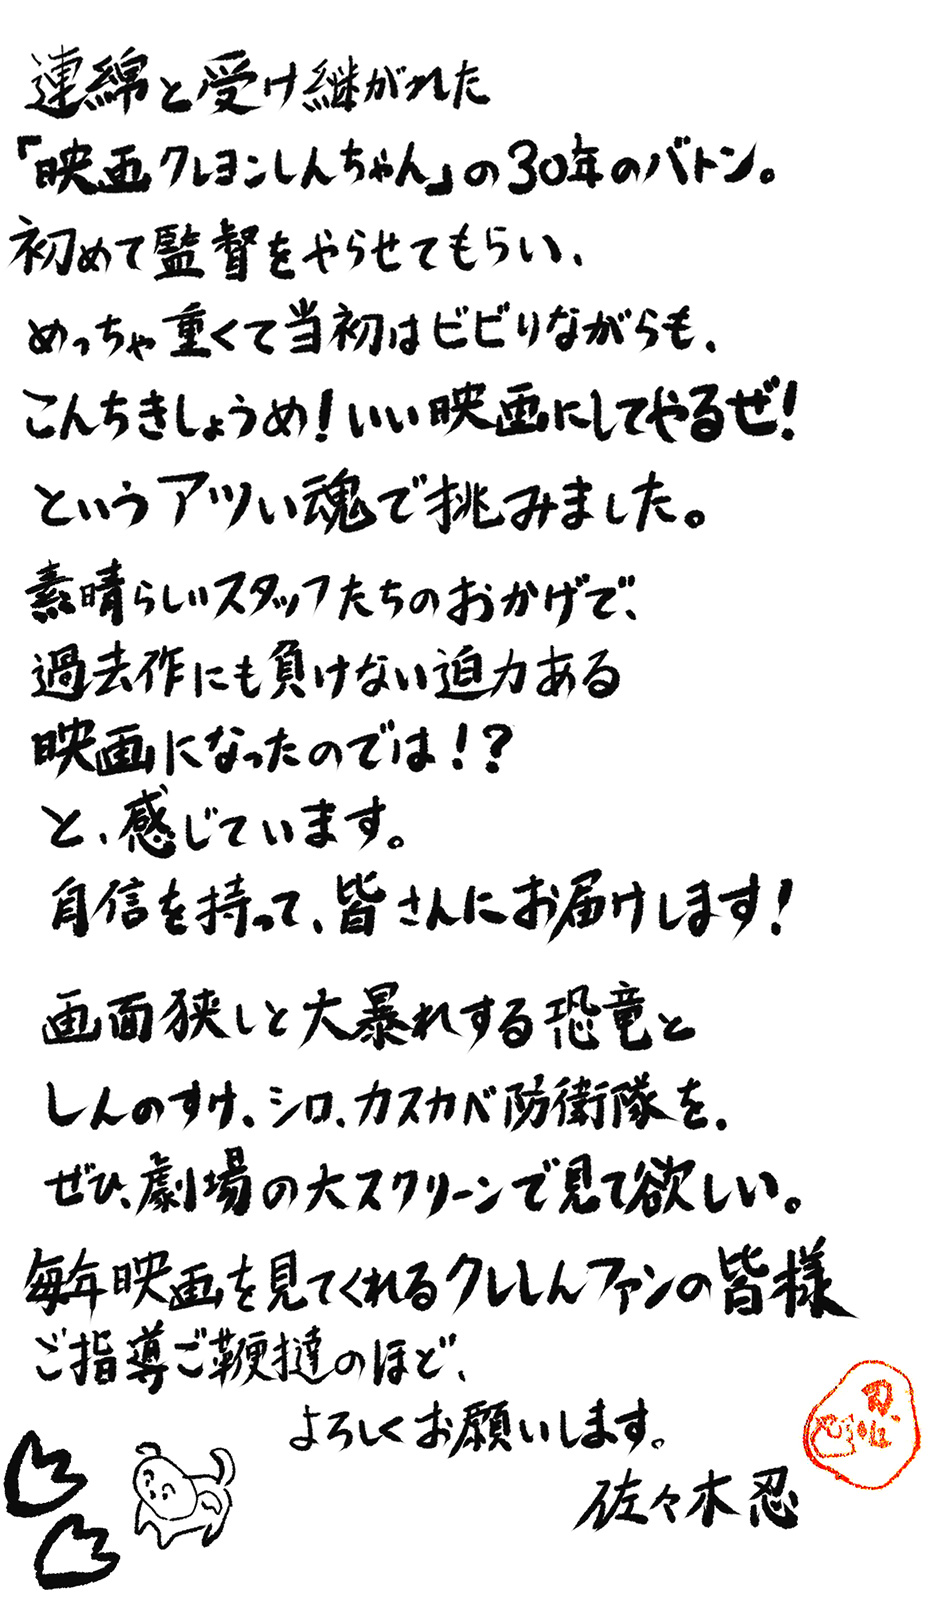 連綿と受け継がれた
「映画クレヨンしんちゃん」の30年のバトン。
初めて監督をやらせてもらい、
めっちゃ重くて当初はビビりながらも、
こんちきしょうめ！いい映画にしてやるぜ！
というアツい魂で挑みました。
素晴らしいスタッフたちのおかげで、
過去作にも負けない迫力ある
映画になったのでは！？
と、感じています。
自信を持って、皆さんにお届けします！
画面狭しと大暴れする恐竜と
しんのすけ、シロ、カスカベ防衛隊を、
ぜひ、劇場の大スクリーンで見て欲しい。
毎年映画を見てくれるクレしんファンの皆様
ご指導ご鞭撻のほど、
よろしくお願いします。
佐々木忍
忍